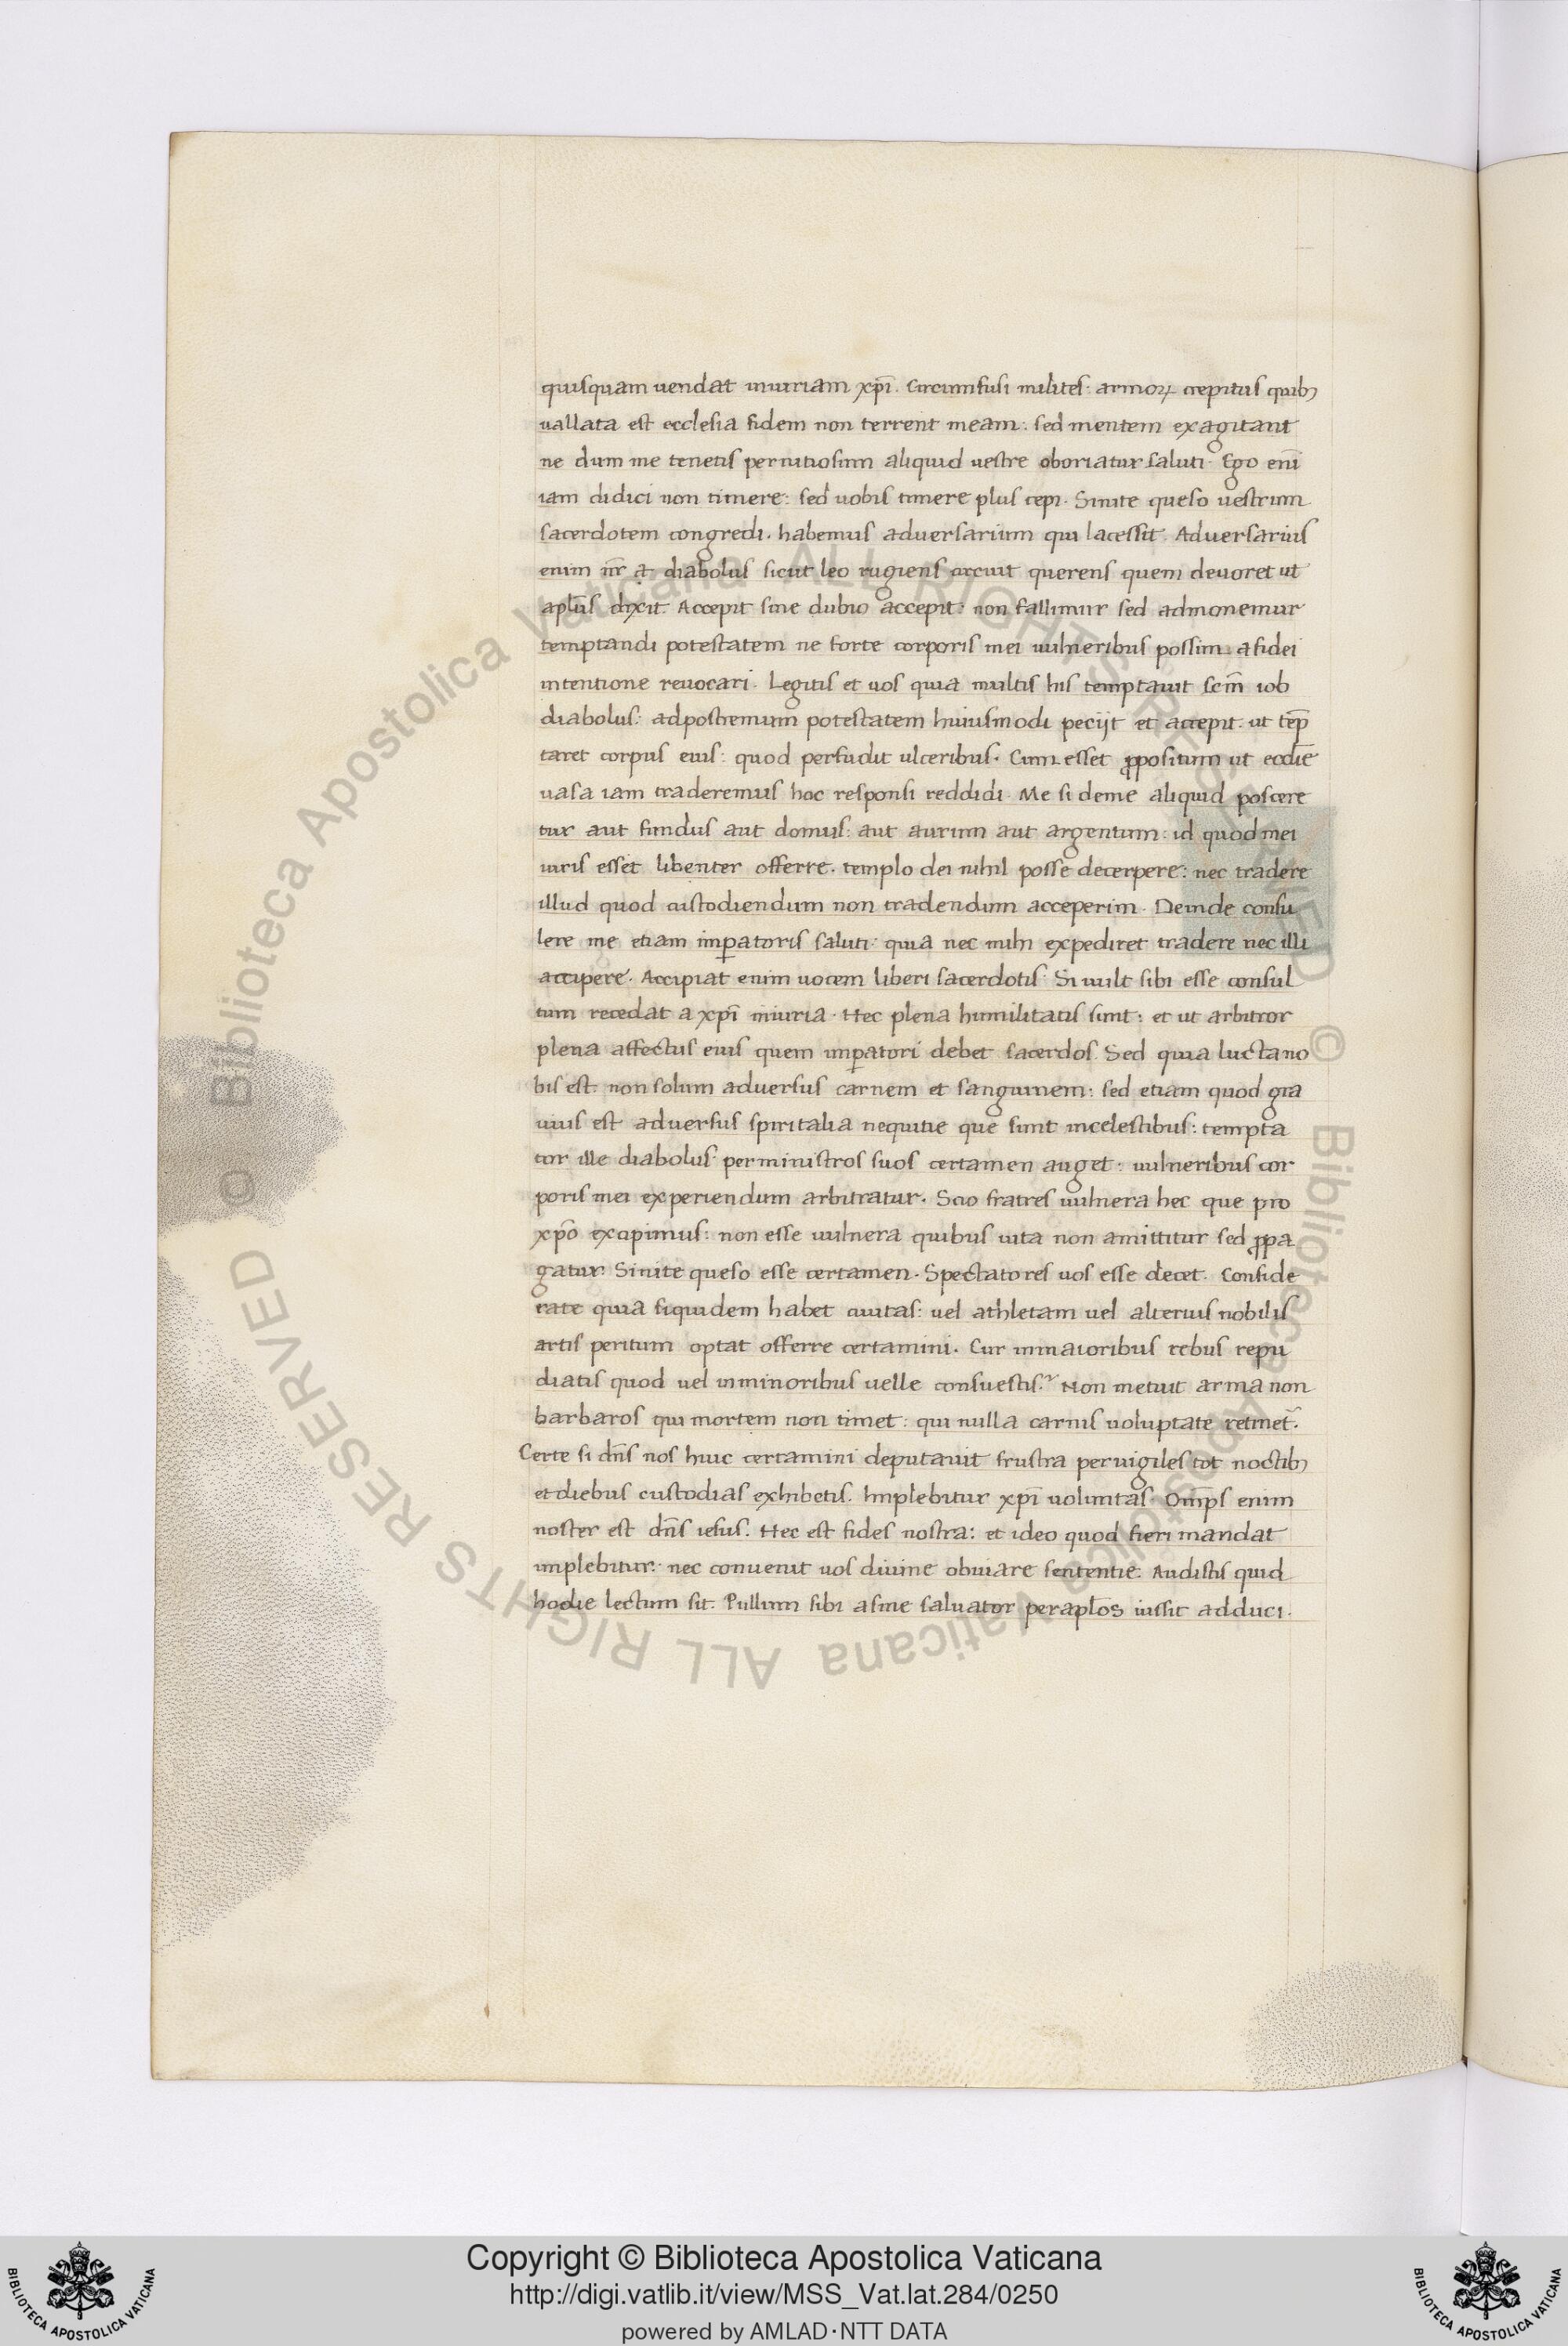 quisquam uendat iniuriam xp̄i. Circumfusi milites: armoꝝ crepitus quibꝫ
uallata est ecclesia fidem non terrent meam: sed mentem exagitant
ne dum me tenetis pernitiosum aliquid uestre oboriatur saluti. Ego eni͞
iam didici non timere: sed uobis timere plus cepi. Sinite queso uestrum
sacerdotem congredi. habemus aduersarium qui lacessit. Aduersarius
enim nr̄ a diabolus sicut leo rugiens circuit querens quem deuoret ut
apl̄us dixit. Accepit sine dubio accepit: non fallimur sed admonemur
temptandi potestatem ne forte corporis mei uulneribus possim a fidei
intentione reuocari. Legitis et uos quia multis his temptauit scm̄ iob
diabolus: adpostremum potestatem huiusmodi pecijt et accepit. ut tēp
taret corpus eius: quod perfudit ulceribus. Cum esset ꝓpositum ut ecclīe
uasa iam traderemus hoc responsi reddidi. Me si deme aliquid poscere
tur aut fundus aut domus: aut aurum aut argentum: id quod mei
iuris esset libenter offerre. templo dei nihil posse decerpere: nec tradere
illud quod custodiendum non tradendum acceperim. Deinde consu
lere me etiam imꝑatoris saluti: quia nec mihi expediret tradere nec illi
accipere. Accipiat enim uocem liberi sacerdotis. Si uult sibi esse consul
tum recedat a xp̄i iniuria. Hec plena humilitatis sunt: et ut arbitror
plena affectus eius quem imꝑatori debet sacerdos. Sed quia lucta no
bis est. non solum aduersus carnem et sanguinem: sed etiam quod gra
uius est aduersus spiritalia nequitie que sunt incelestibus: tempta
tor ille diabolus perministros suos certamen auget: uulneribus cor
poris mei experiendum arbitratur. Scio fratres uulnera hec que pro
xp̄o excipimus: non esse uulnera quibus uita non amittitur sed ꝓpa
gatur. Sinite queso esse certamen. Spectatores uos esse decet. Conside
rate quia siquidem habet ciuitas: uel athletam uel alterius nobilis
artis peritum optat offerre certamini. Cur inmaioribus rebus repu
diatis quod uel inminoribus uelle consuestis? Non metuit arma non
barbaros qui mortem non timet: qui nulla carnis uoluptate retinet᷑.
Certe si dn̄s nos huic certamini deputauit frustra peruigiles tot noctibꝫ
et diebus custodias exhibetis. Implebitur xp̄i uoluntas. Om̄ps enim
noster est dn̄s iesus. Hec est fides nostra: et ideo quod fieri mandat
implebitur: nec conuenit uos diuine obuiare sententie. Audistis quid
hodie lectum sit. Pullum sibi asine saluator perapl̄os iussit adduci.
© Biblioteca Apostolica Vaticana ALL RIGHTS RESERVED
© Biblioteca Apostolica Vaticana ALL RIGHTS RESERVED
Copyright © Biblioteca Apostolica Vaticana
http://digi.vatlib.it/view/MSS_Vat.lat.284/0250
powered by AMLAD·NTT DATA
BIBLIOTECA APOSTOLICA VATICANA
BIBLIOTECA APOSTOLICA VATICANA